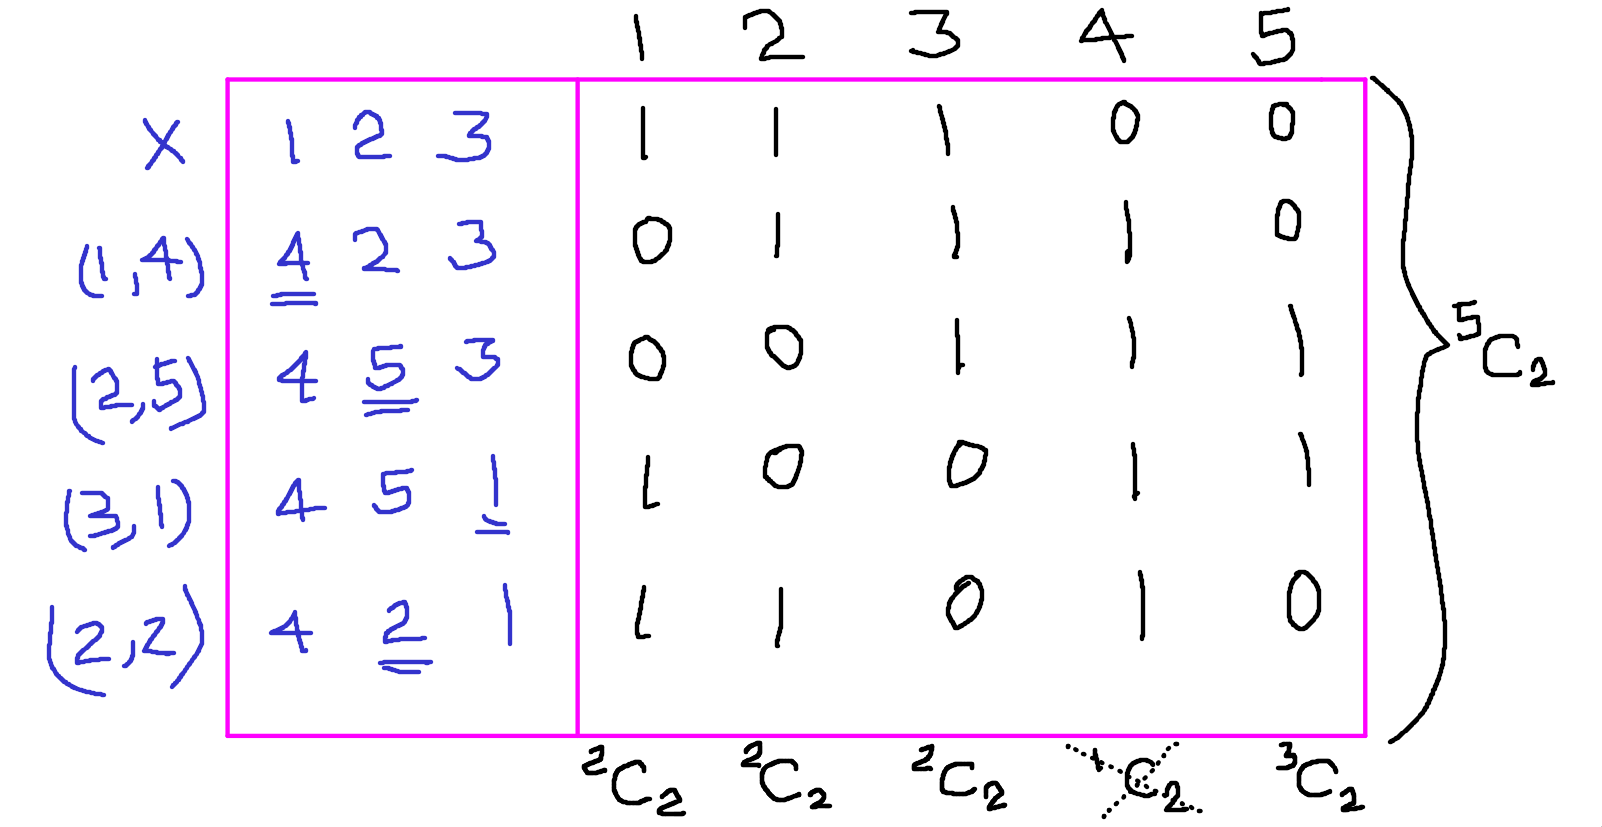 1 2 3 4 5
X 1 2 3 1 1 1 0 0
(1,4) 4 2 3 0 1 1 1 0
(2,5) 4 5 3 0 0 1 1 1
(3,1) 4 5 1 1 0 0 1 1
(2,2) 4 2 1 1 1 0 1 0
⁵C₂
²C₂ ²C₂ ²C₂ ¹C₂ ³C₂